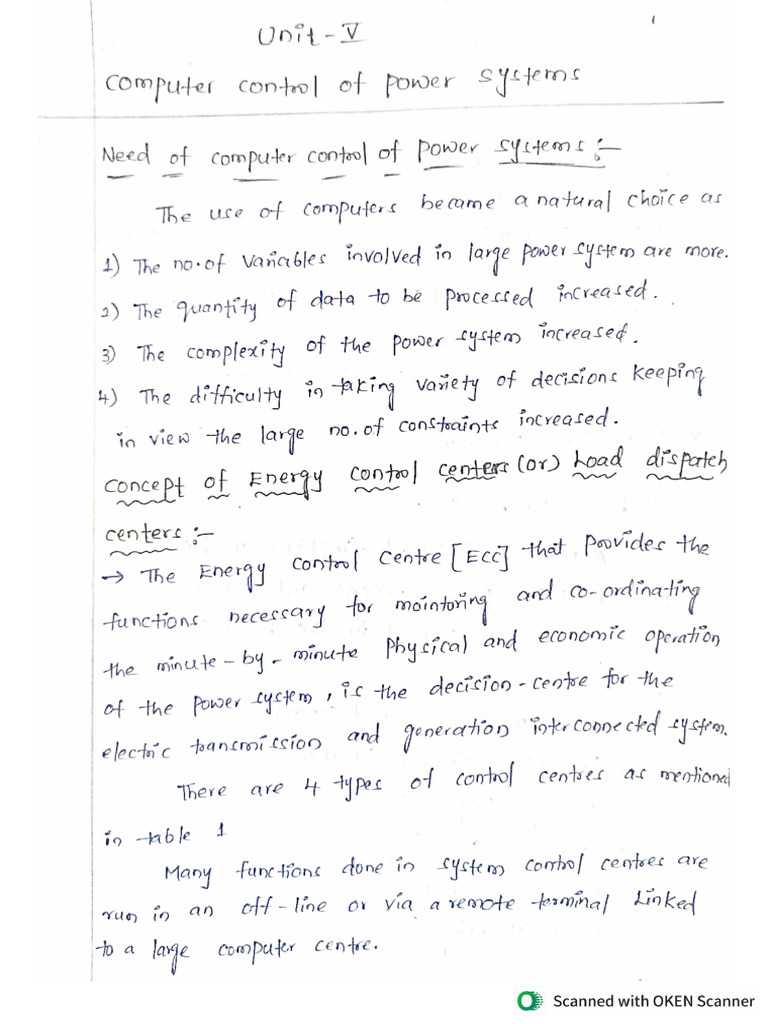 1
Unit-V
Computer control of power systems
Need of computer control of power systems:-
The use of computers became a natural choice as
1) The no.of variables involved in large power system are more.
2) The quantity of data to be processed increased.
3) The complexity of the power system increased.
4) The difficulty in taking variety of decisions keeping
in view the large no.of constraints increased.
Concept of Energy control centers (or) Load dispatch
centers:-
→ The Energy Control Centre [ECC] that provides the
functions necessary for mointoring and co-ordinating
the minute-by-minute physical and economic operation
of the power system, is the decision-centre for the
electric transmission and generation interconnected system.
There are 4 types of control centres as mentional
in table 1
Many functions done in system control centres are
run in an off-line or via a remote terminal linked
to a large computer centre.
Scanned with OKEN Scanner